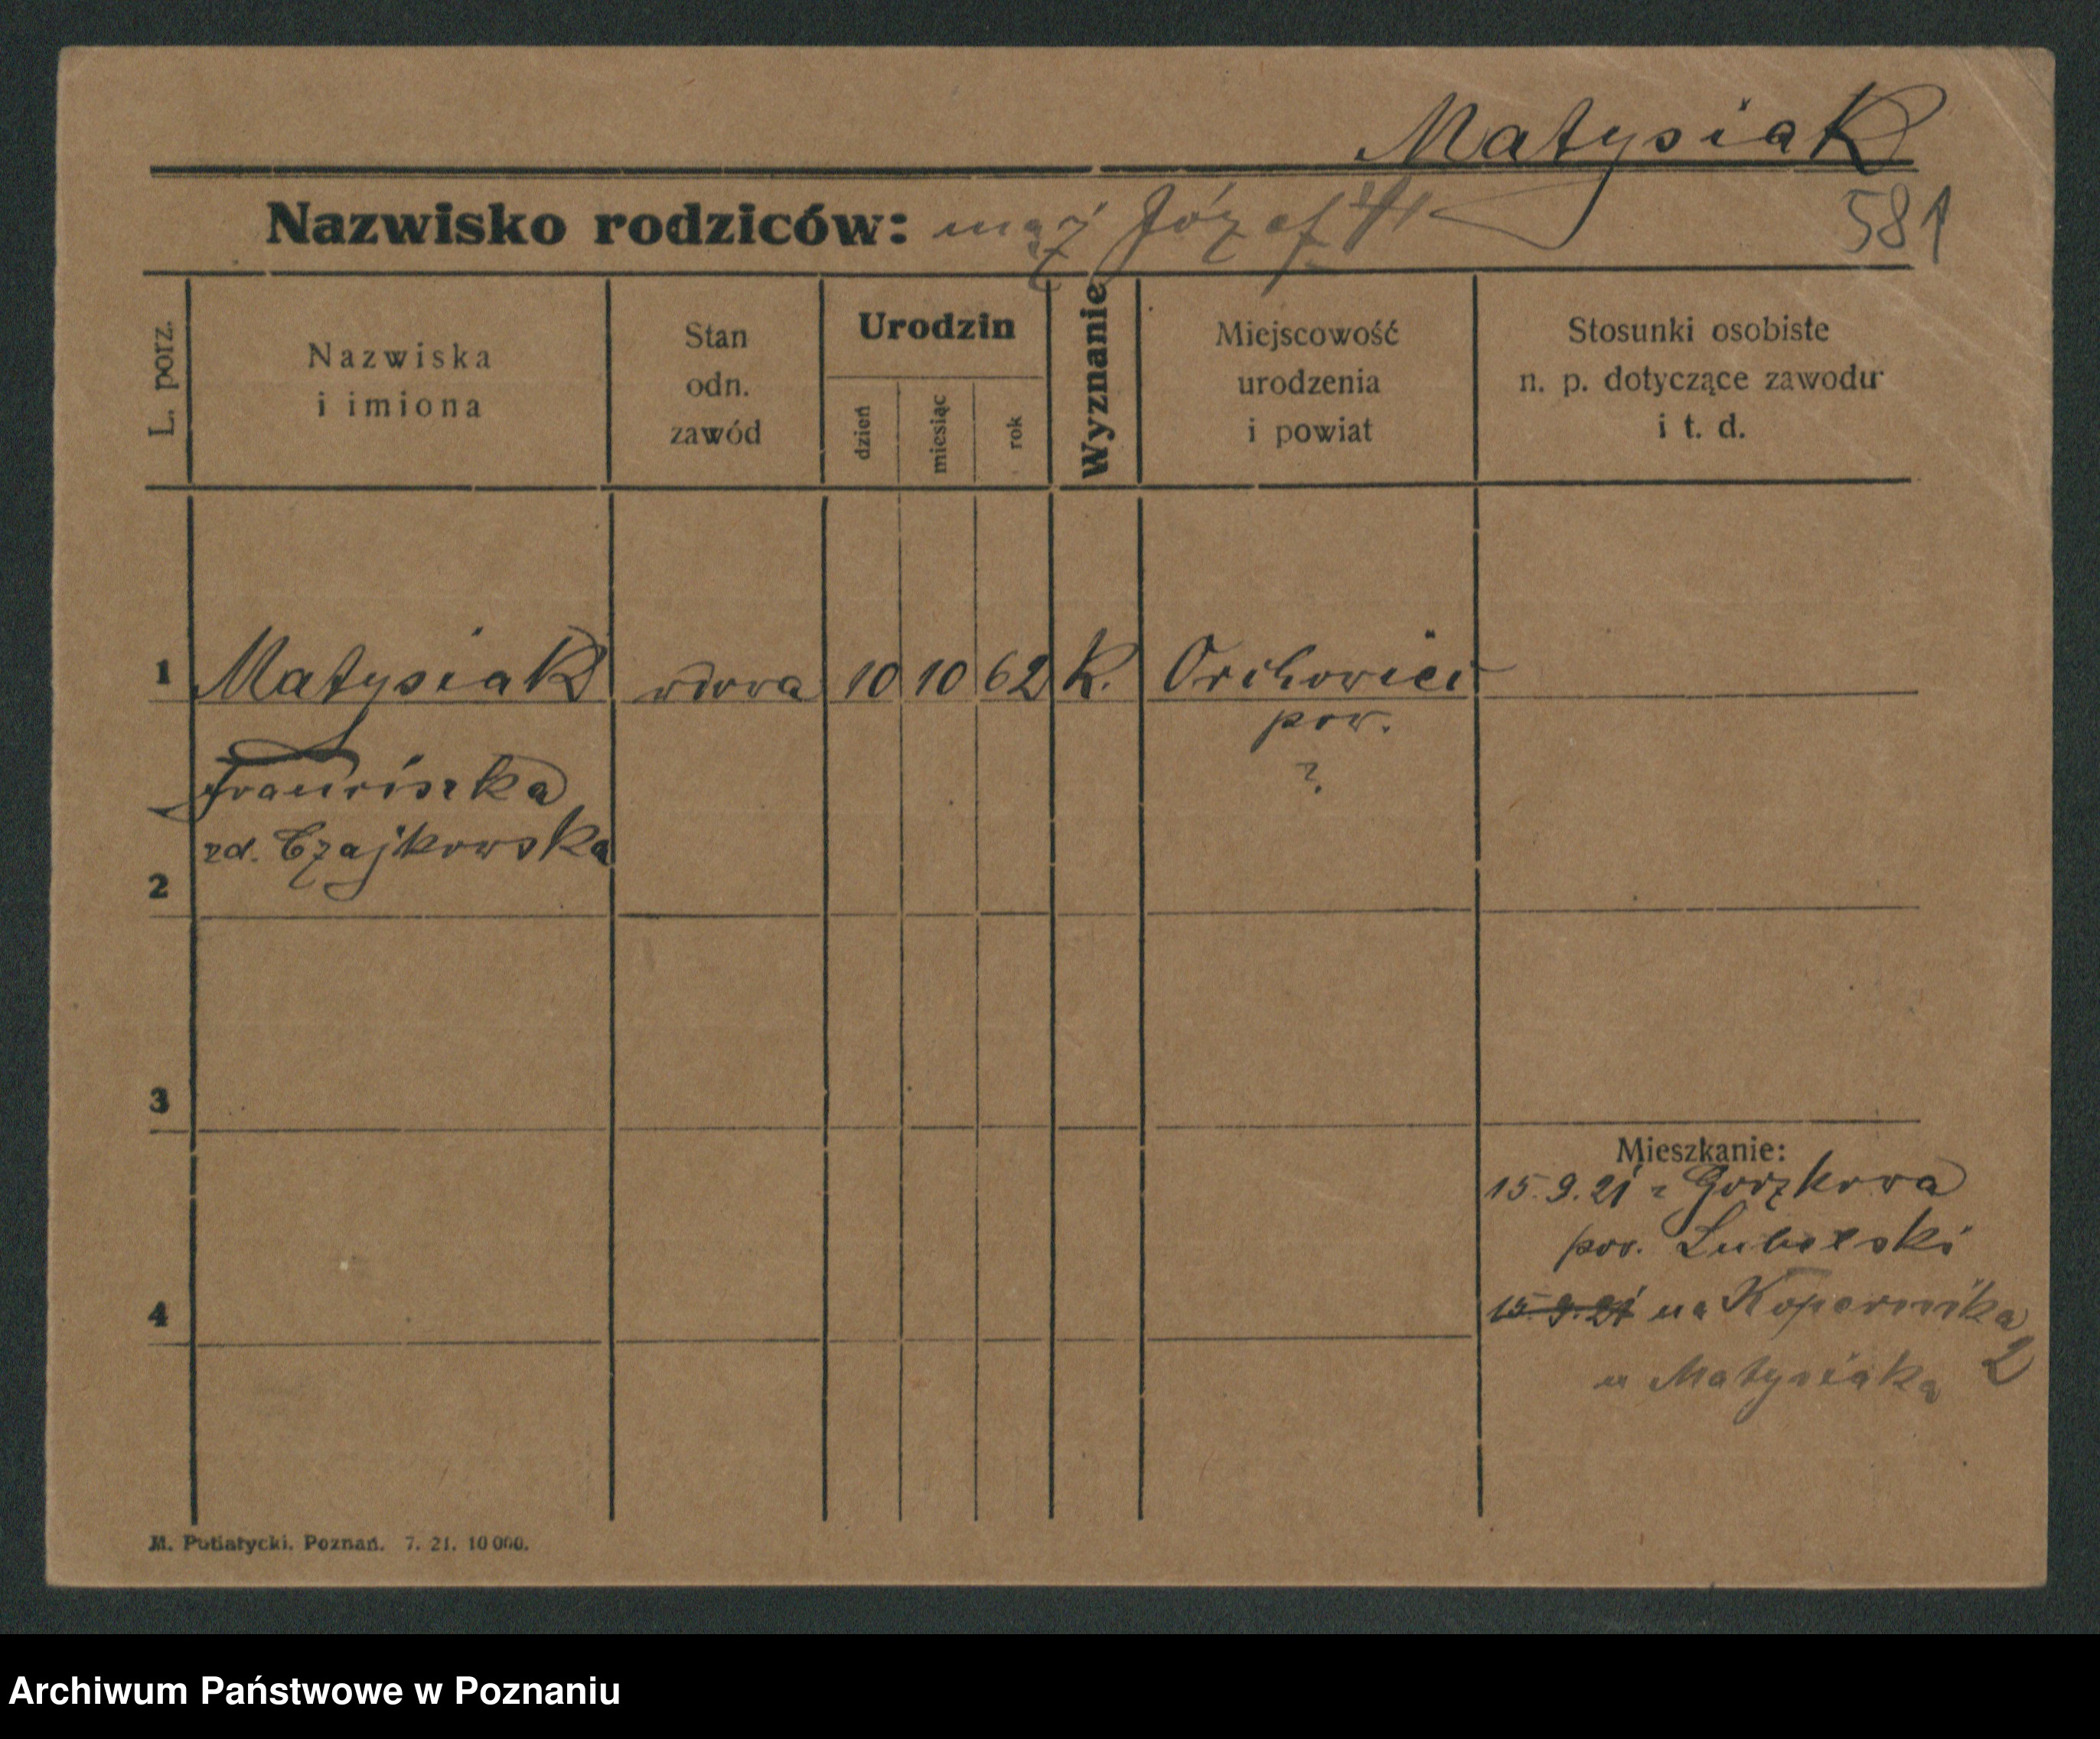 Matysiak
Nazwisko rodziców: mąż Józef
581
L. porz.
Nazwiska
i imiona
Stan
odn.
zawód
Urodzin
dzień
miesiąc
rok
Wyznanie
Miejscowość
urodzenia
i powiat
Stosunki osobiste
n. p. dotyczące zawodu
i t. d.
1 Matysiak wdowa 10 10 62 K. Orchowiec
pow.
?
Franciszka
zd. Czajkowska
2
3
Mieszkanie:
15.9.21 z Gorzkowa
pow. Lubelski
4
15.9.21 na Kopernika
2
u Matysiaka
M. Putiatycki. Poznań. 7. 21. 10 000.
Archiwum Państwowe w Poznaniu